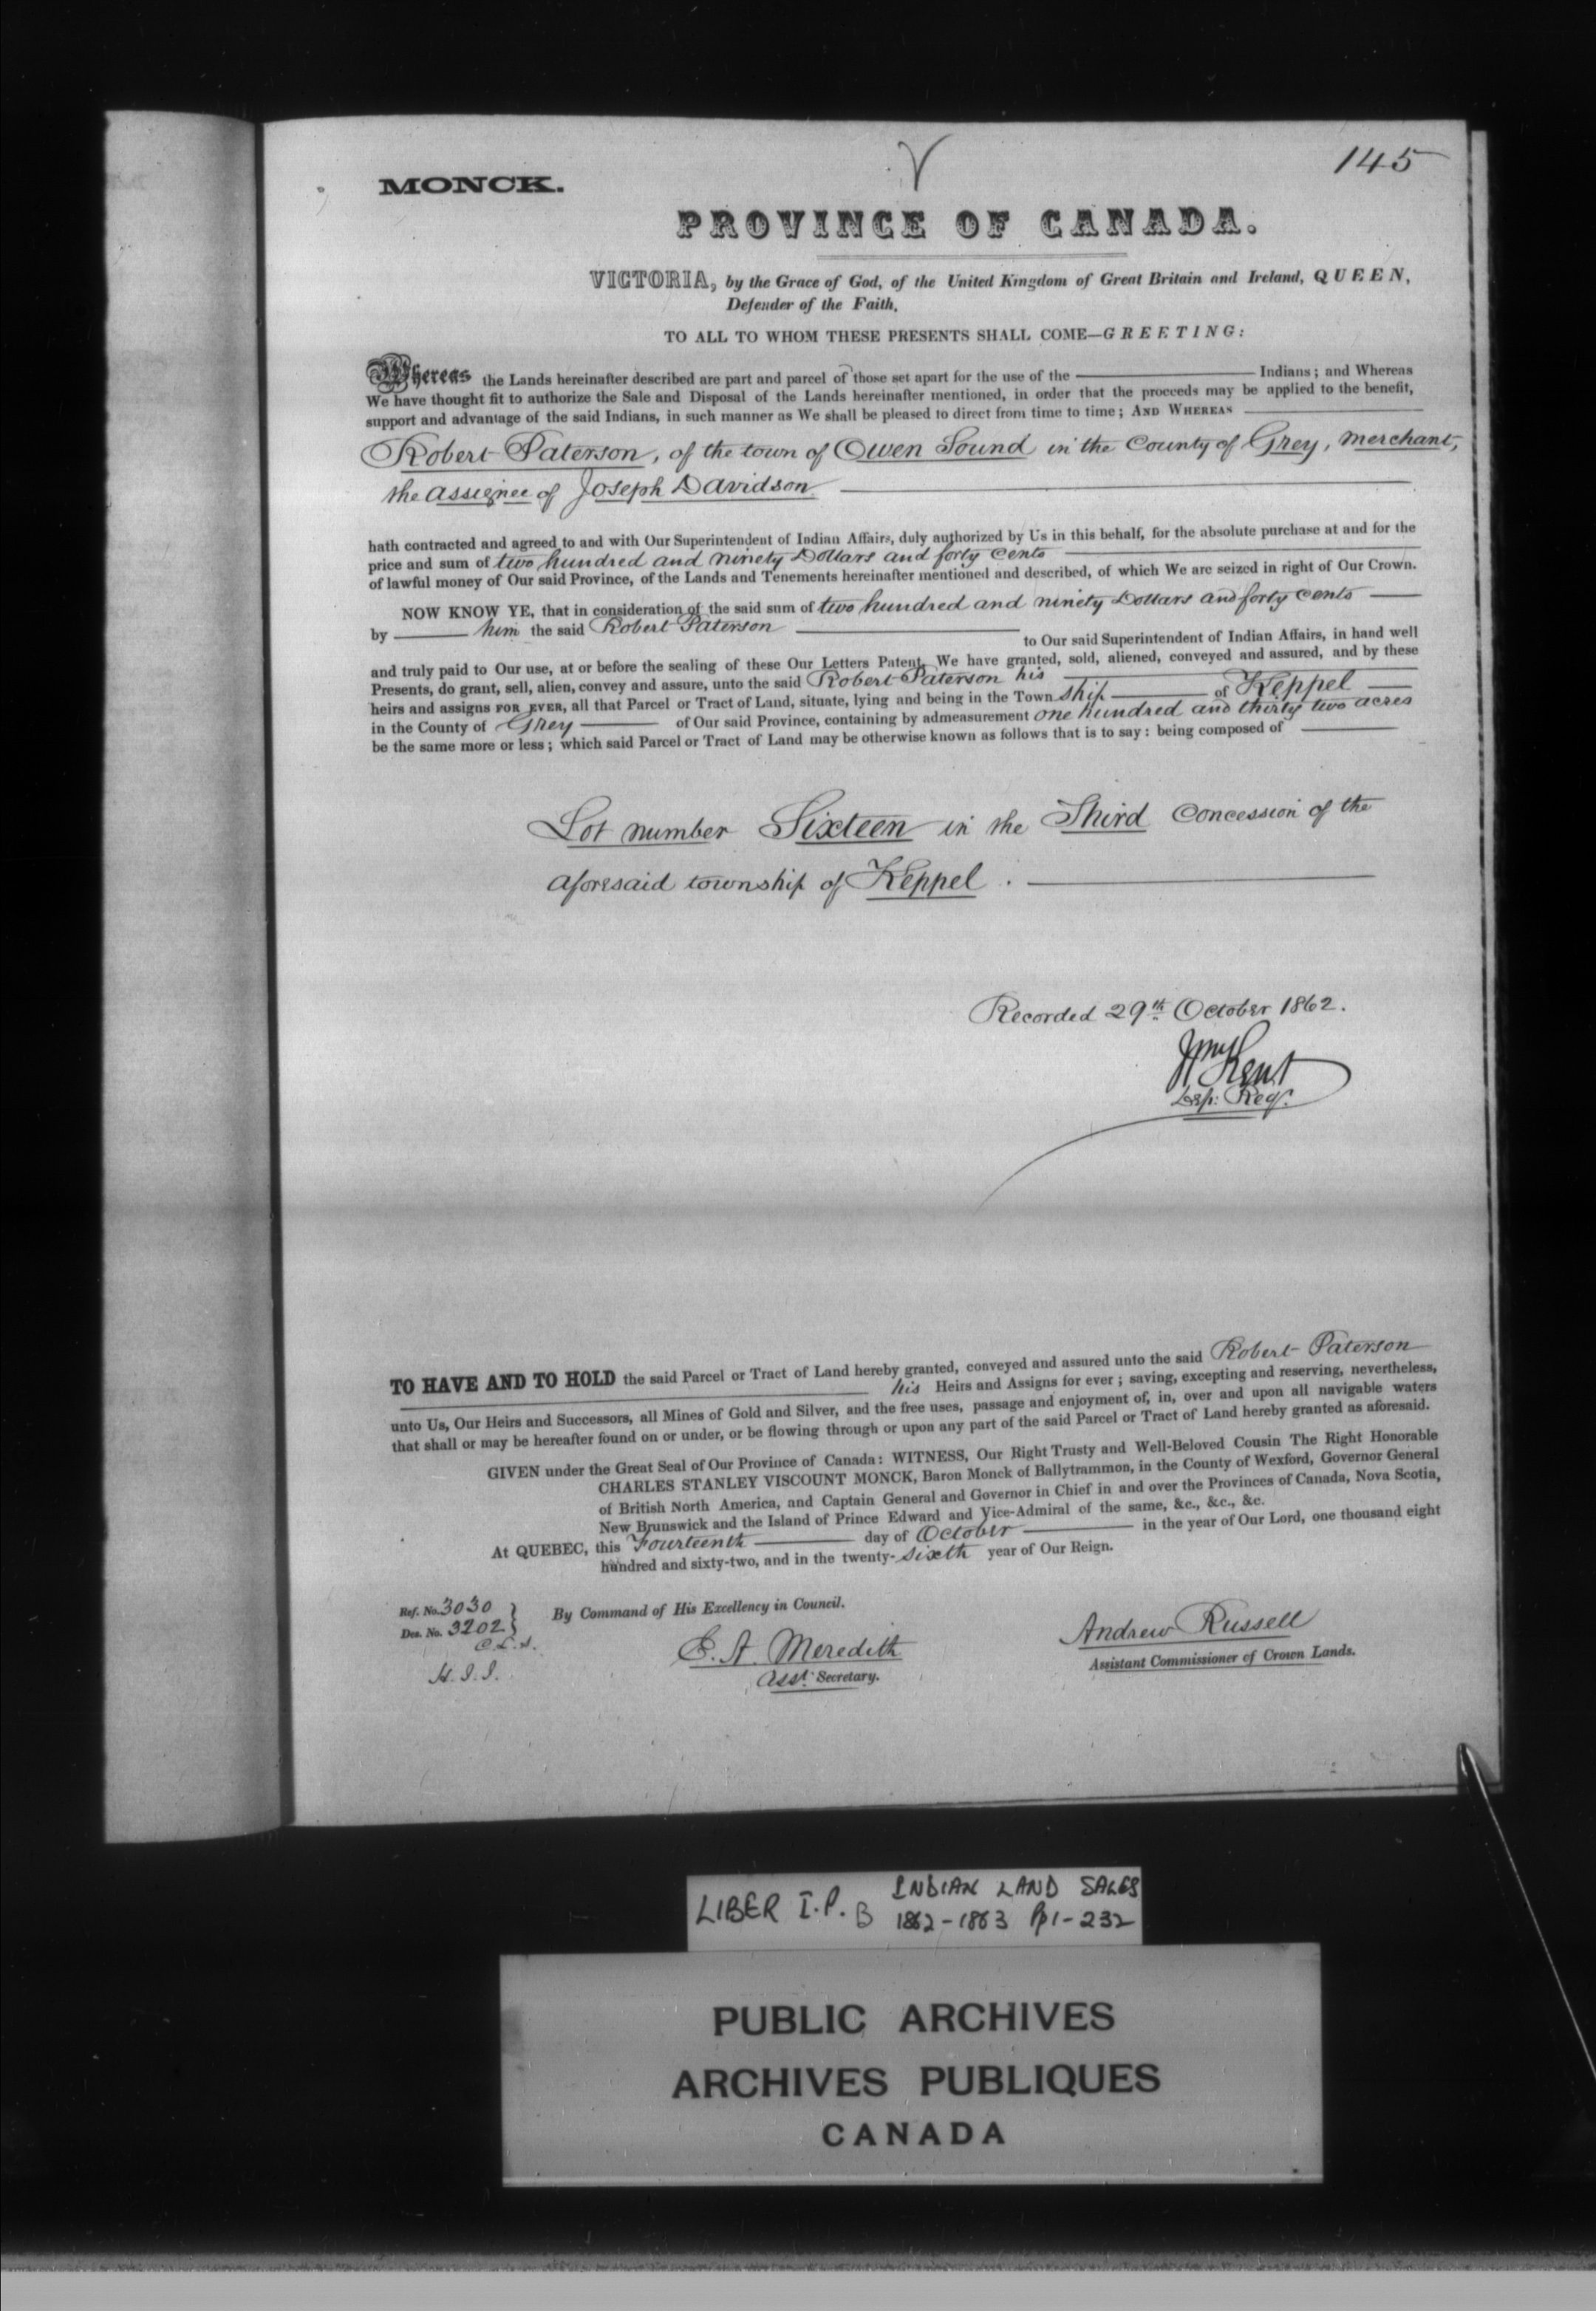 145
MONCK.
PROVINCE OF CANADA.
VICTORIA, by the Grace of God, of the United Kingdom of Great Britain and Ireland, QUEEN,
Defender of the Faith,
TO ALL TO WHOM THESE PRESENTS SHALL COME—GREETING:
Whereas the Lands hereinafter described are part and parcel of those set apart for the use of the Indians; and Whereas
We have thought fit to authorize the Sale and Disposal of the Lands hereinafter mentioned, in order that the proceeds may be applied to the benefit,
support and advantage of the said Indians, in such manner as We shall be pleased to direct from time to time; AND WHEREAS
Robert Paterson, of the town of Owen Sound in the County of Grey, merchant,
the assignee of Joseph Davidson
hath contracted and agreed to and with Our Superintendent of Indian Affairs, duly authorized by Us in this behalf, for the absolute purchase at and for the
price and sum of two hundred and ninety Dollars and forty cents
of lawful money of Our said Province, of the Lands and Tenements hereinafter mentioned and described, of which We are seized in right of Our Crown.
NOW KNOW YE, that in consideration of the said sum of two hundred and ninety Dollars and forty cents
by him the said Robert Paterson to Our said Superintendent of Indian Affairs, in hand well
and truly paid to Our use, at or before the sealing of these Our Letters Patent, We have granted, sold, aliened, conveyed and assured, and by these
Presents, do grant, sell, alien, convey and assure, unto the said Robert Paterson his
heirs and assigns FOR EVER, all that Parcel or Tract of Land, situate, lying and being in the Town ship of Keppel
in the County of Grey of Our said Province, containing by admeasurement one hundred and thirty two acres
be the same more or less; which said Parcel or Tract of Land may be otherwise known as follows that is to say: being composed of
Lot number Sixteen in the Third Concession of the
aforesaid township of Keppel.
Recorded 29th October 1862.
Wm Kent
Dep: Regr.
TO HAVE AND TO HOLD the said Parcel or Tract of Land hereby granted, conveyed and assured unto the said Robert Paterson
his Heirs and Assigns for ever; saving, excepting and reserving, nevertheless,
unto Us, Our Heirs and Successors, all Mines of Gold and Silver, and the free uses, passage and enjoyment of, in, over and upon all navigable waters
that shall or may be hereafter found on or under, or be flowing through or upon any part of the said Parcel or Tract of Land hereby granted as aforesaid.
GIVEN under the Great Seal of Our Province of Canada: WITNESS, Our Right Trusty and Well-Beloved Cousin The Right Honorable
CHARLES STANLEY VISCOUNT MONCK, Baron Monck of Ballytrammon, in the County of Wexford, Governor General
of British North America, and Captain General and Governor in Chief in and over the Provinces of Canada, Nova Scotia,
New Brunswick and the Island of Prince Edward and Vice-Admiral of the same, &c., &c., &c.
At QUEBEC, this Fourteenth day of October in the year of Our Lord, one thousand eight
hundred and sixty-two, and in the twenty-sixth year of Our Reign.
Ref. No. 3030
Des. No. 3202
C.L.S.
By Command of His Excellency in Council.
E. A. Meredith
Asst. Secretary.
Andrew Russell
Assistant Commissioner of Crown Lands.
LIBER I.P. B INDIAN LAND SALES
1862-1863 Pp 1-232
PUBLIC ARCHIVES
ARCHIVES PUBLIQUES
CANADA